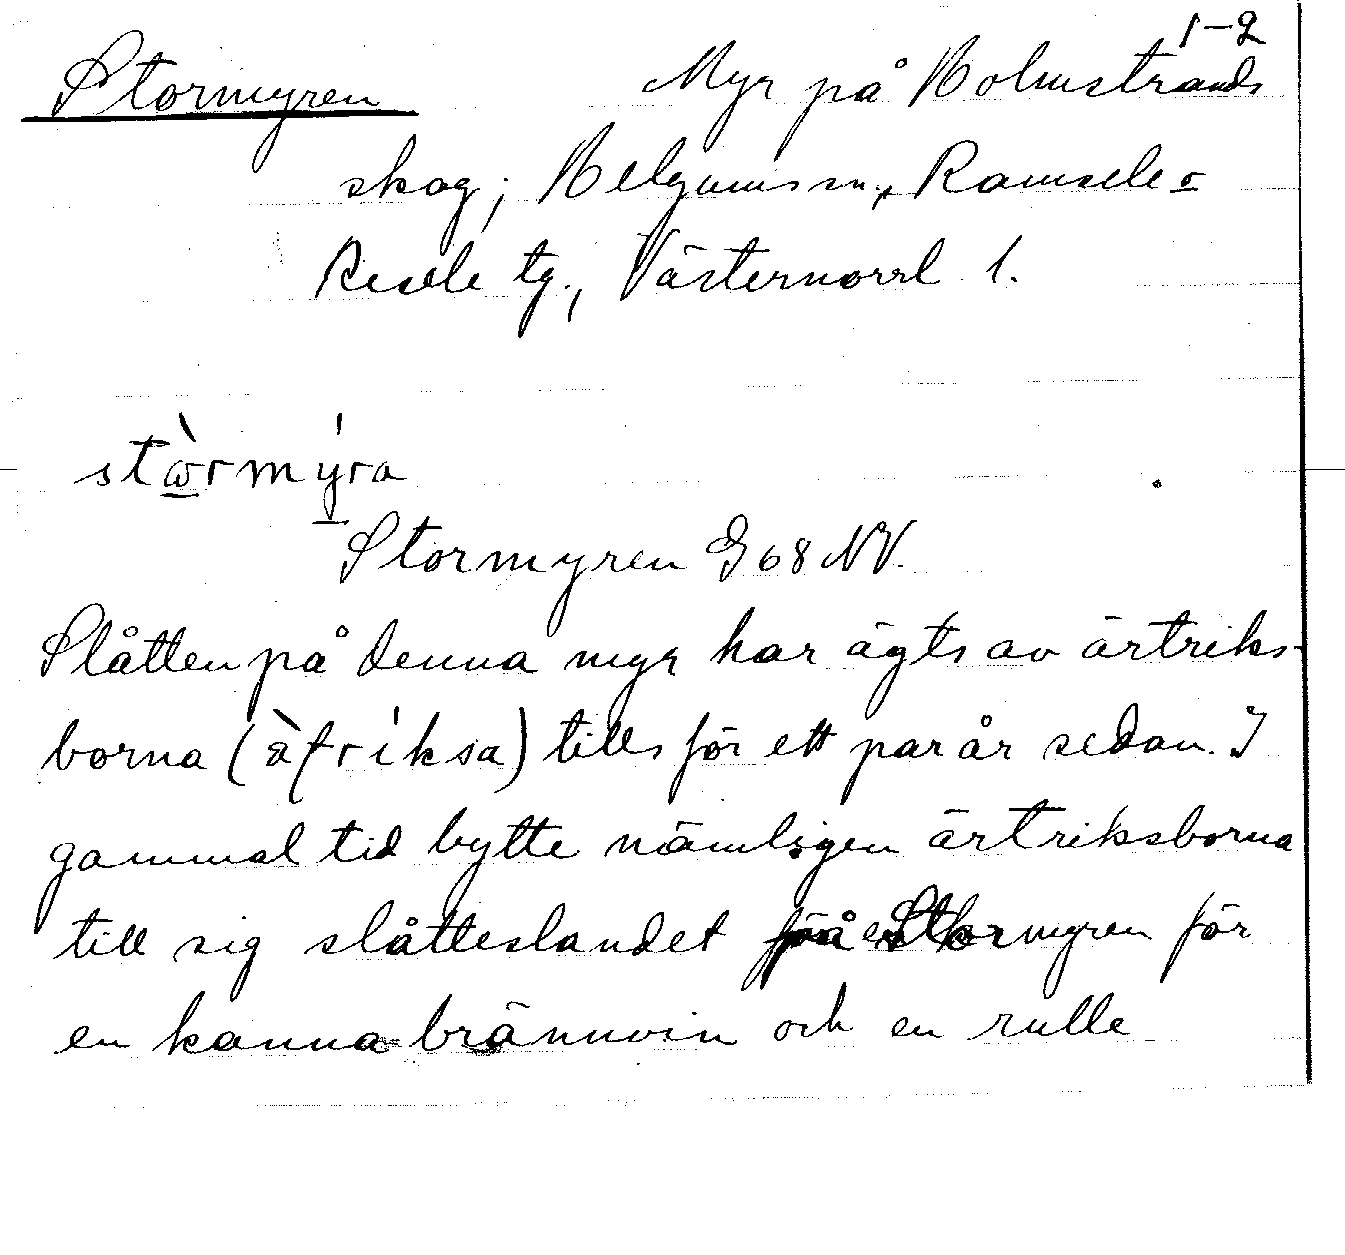 1-2
Stormyren Myr på Holmstrands
skog; Helgums sn., Ramsele o
Resele tg., Västernorrl l.
stωrmyra
Stormyren G68 NV.
Slåtten på denna myr har ägts av ärtriks-
borna (àfríksa) tills för ett par år sedan. I
gammal tid bytte nämligen ärtriksborna
till sig slåtteslandet på Stormyren för
en kanna brännvin och en rulle